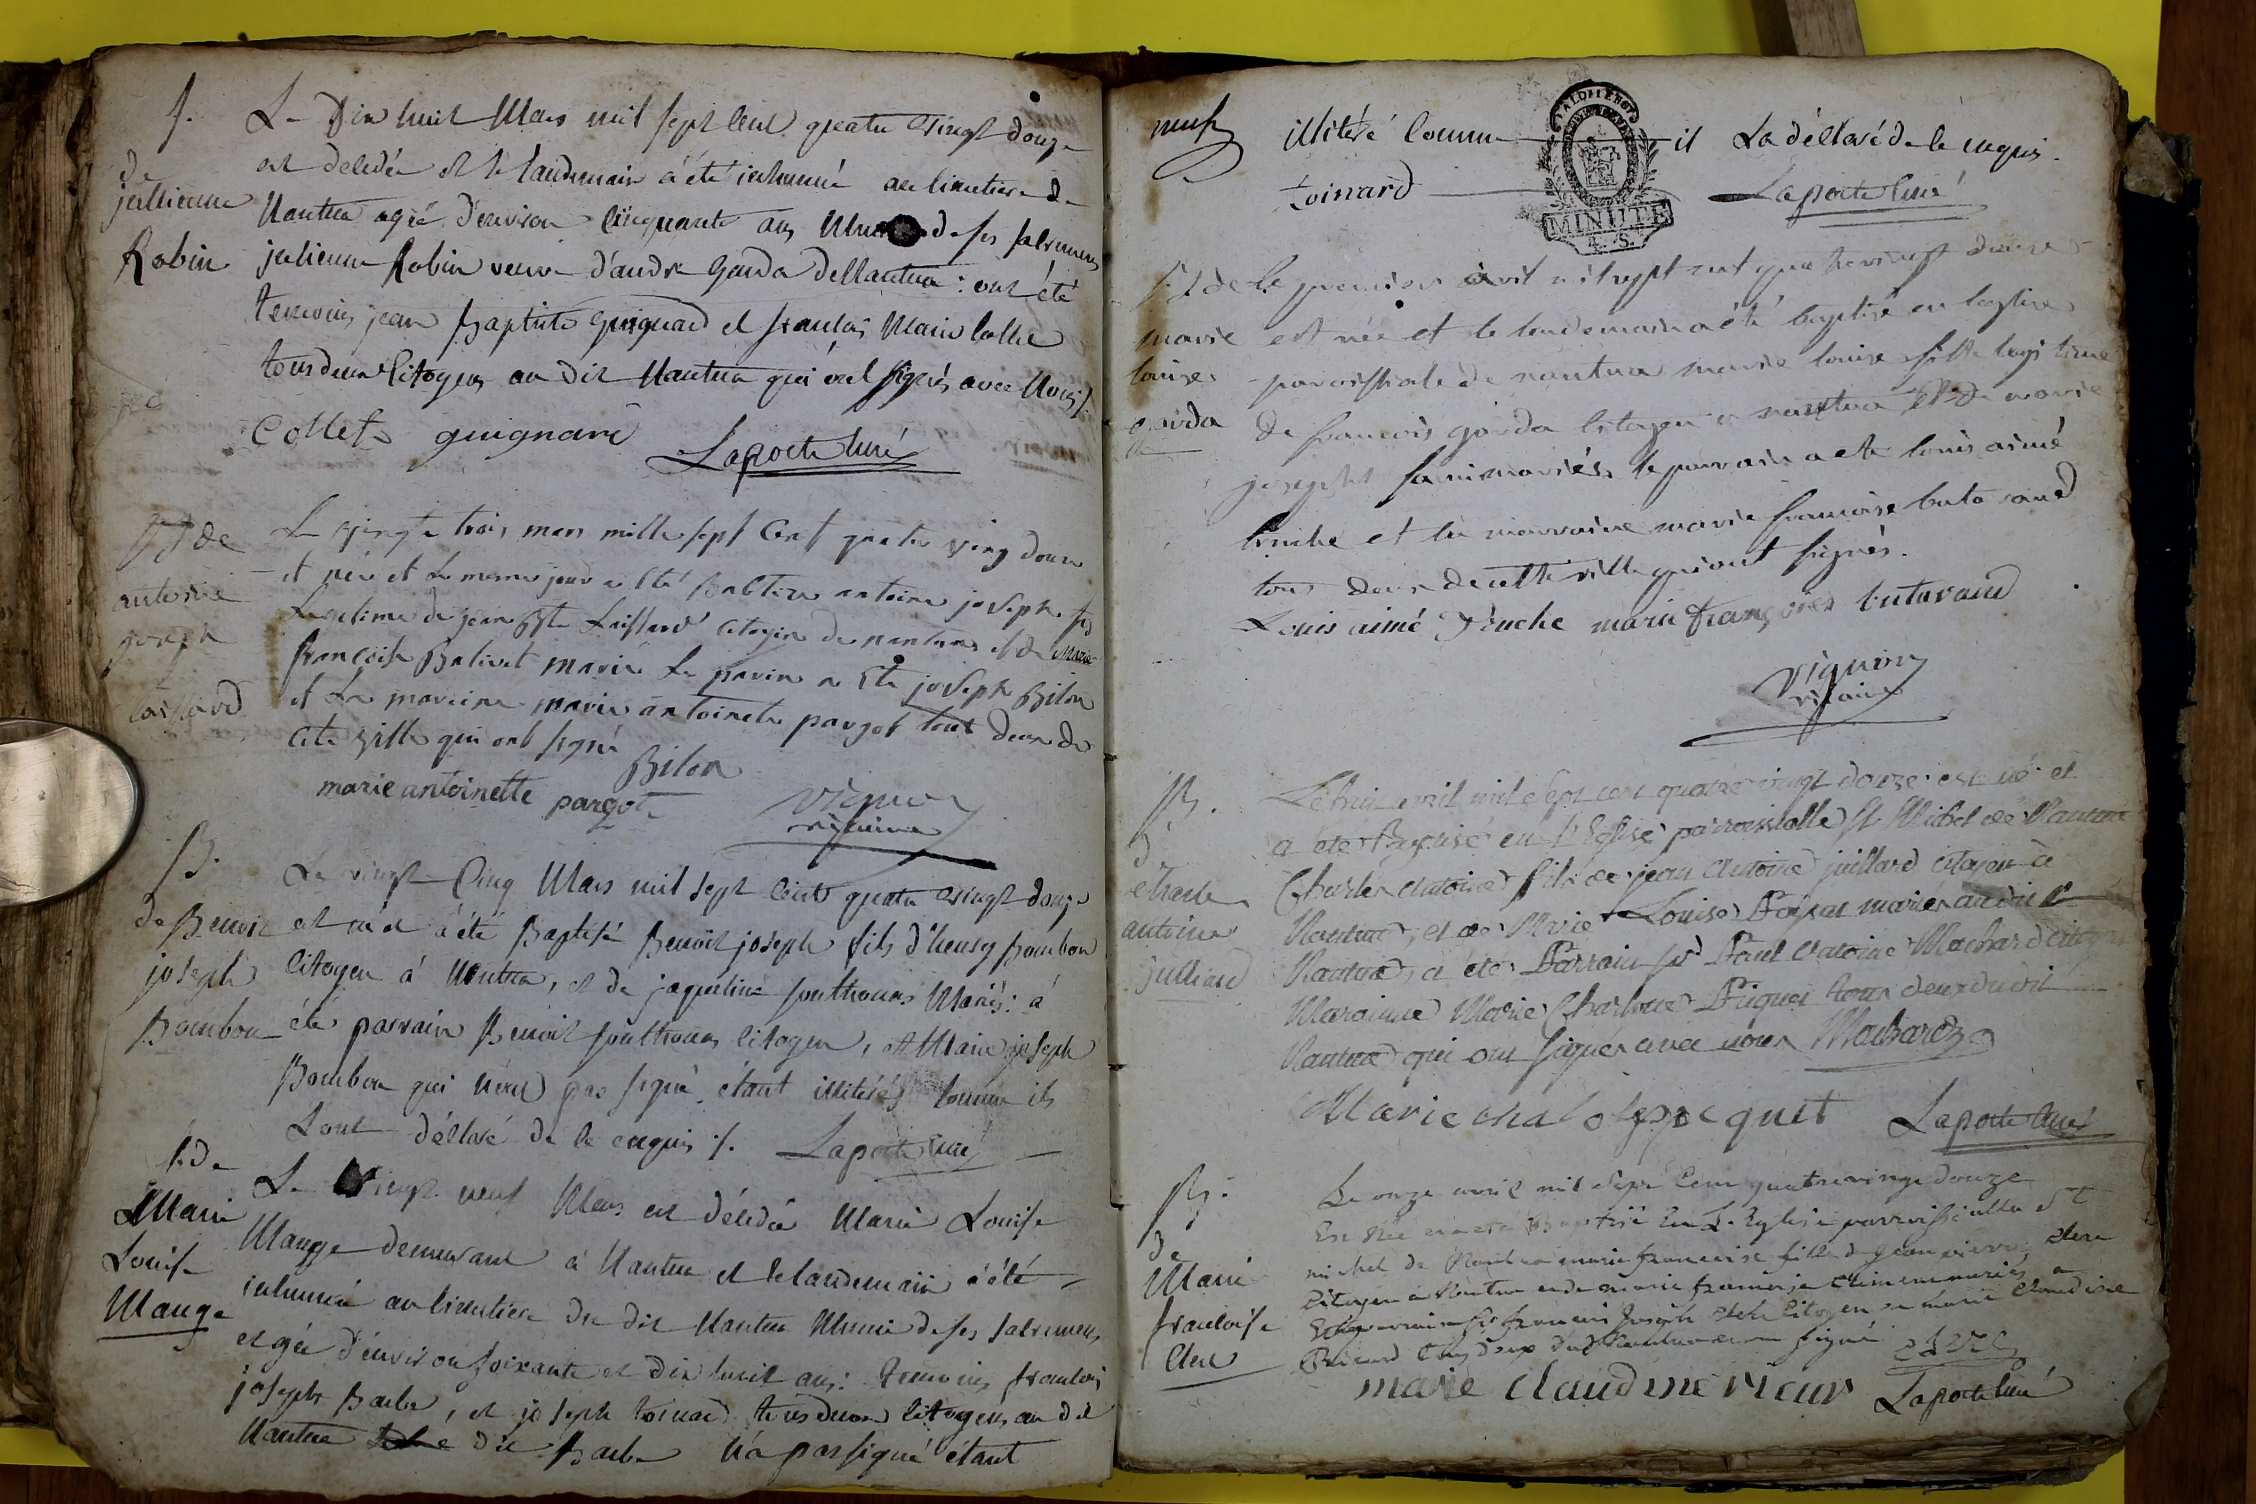 S.
de
jullienne
Robin
Le Dix huit Mars mil sept cent quatre vingt douze
est décédée et le landemain a été inhumée au cimetiere de
Nantua agée d'environ cinquante ans Munie de ses sacremens
julienne Robin veuve d'andré Garda de Nantua : ont été
temoins jean Baptiste Guignard et francois Marie Collet
tous deux Citoyens au dit Nantua qui ont signés avec Nous ./.
Collet guignard Laporte Curé
B de
antoine
joseph
Laissard
Le vingte trois mars mille sept Cent quatre ving douze
et née et le meme jour a été babtize antoine joseph fils
Legitime de jean Bte Laissard citoyin de nantua et de Marie
françoise Balivet marié Le parin a été joseph Bilon
et La mareine marie antoinette pargot tout deux de
cete ville qui ont signé
Bilon
marie antoinette pargot
Vignon
vicaire
B.
de Benoit
joseph
Bombon
Le vingt Cinq Mars mil sept Cent quatre vingt douze
est né et a été Baptisé Benoit joseph fils d'henry Bombon
Citoyen à Nantua, et de jaqueline Mariés : a
été parrain Benoit Citoyen, et Marie joseph
Bombon qui n'ont pas signé, étant illiterés comme ils
L'ont déclaré de ce enquis ./. Laporte Curé
S. de
Marie
Louise
Mauge
Le vingt neuf Mars est décédée Marie Louise
Mauge demeurant à Nantua et le landemain a été
inhumée au cimetiere du dit Nantua Munie de ses sacremens
et agée d'environ soixante et dix huit ans : temoins francois
joseph Barbe, et joseph toinard tous deux Citoyens au dit
Nantua dit Barbe n'a pas signé étant
neuf
illiteré comme il La déclaré de ce enquis.
toinard Laporte Curé
MINUTE
4. S.
B de
marie
louise
garda
Le premier avril mil sept cent quatre vingt douze
est née et le lendemain a été baptisé en l'eglise
paroissiale de nantua marie louise fille legitime
de francois garda citoyen a nantua et de marie
josephe mariés, le parrain a été louis aimé
et la marraine marie francoise butavand
tous deux de cette ville qui ont signés.
Louis aimé marie françoise butavand
Vignon
vicaire
B.
d
Charle
antoine
julliard
Le huit avril mil sept cent quatre vingt douze est né et
a été Baptisé en l'Eglise parroissialle St Michel de Nantua
Charles Antoine fils de jean Antoine juillard citoyen à
Nantua, et de Marie Louise mariés au dit
Nantua, a été Parrain Sr Paul Antoine Machard citoyen
Maraine Marie Charlotte Piquet tous deux du dit
Nantua qui ont signés avec nous Machard
Marie Laporte Curé
B.
de
Marie
francoise
Clerc
Le onze avril mil sept cent quatre vingt douze
Est née et a été Baptisée En L'Eglise parroissialle St
michel de Nantua marie francoise fille de jean pierre Clerc
Citoyen à Nantua et de marie francoise mariés, a
Eté parrain Sr francois joseph Clerc Citoyen et marie Claudine
tous deux dud Nantua signé Clerc
marie claudine Laporte Curé